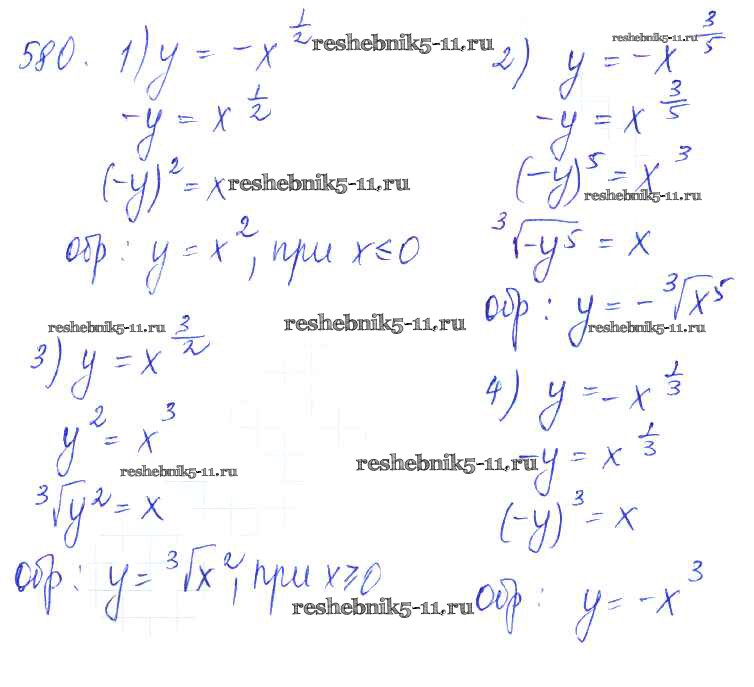 580. 1) y = -x^{1/2} reshebnik5-11.ru
-y = x^{1/2}
(-y)^2 = x reshebnik5-11.ru
Обр: y = x^2, при x ≤ 0
reshebnik5-11.ru
2) y = -x^{3/5}
-y = x^{3/5}
(-y)^5 = x^3
reshebnik5-11.ru
∛(-y^5) = x
Обр: y = -∛x^5
reshebnik5-11.ru
reshebnik5-11.ru
reshebnik5-11.ru
3) y = x^{3/2}
y^2 = x^3
reshebnik5-11.ru
∛y^2 = x
Обр: y = ∛x^2, при x ≥ 0
reshebnik5-11.ru
4) y = -x^{1/3}
reshebnik5-11.ru
-y = x^{1/3}
(-y)^3 = x
Обр: y = -x^3